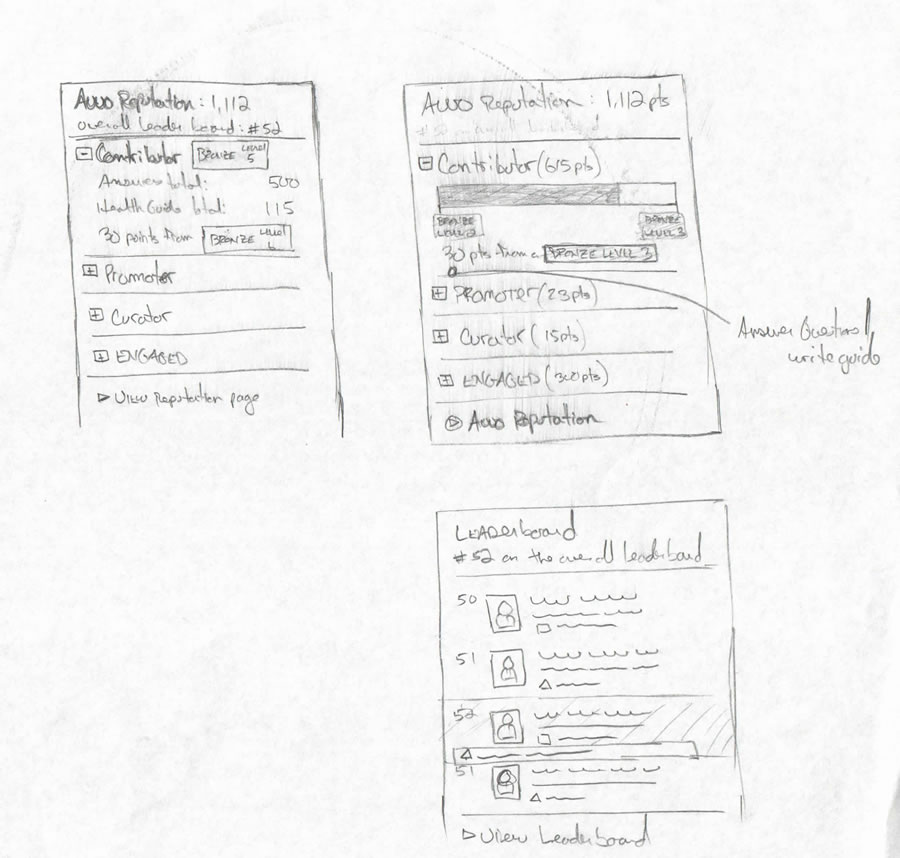 Avvo Reputation: 1,112
overall leader board: #52
Contributor BRONZE LEVEL 5
Answers total: 500
Health Guide total: 115
30 points from BRONZE LEVEL 6
Promoter
Curator
ENGAGED
View Reputation page
Avvo Reputation: 1,112 pts
#52 on overall leaderboard
Contributor (615 pts)
BRONZE LEVEL 2
BRONZE LEVEL 3
30 pts from a BRONZE LEVEL 3
PROMOTER (23 pts)
Curator (15 pts)
ENGAGED (300 pts)
Avvo Reputation
Answer Questions,
write guide
LEADerboard
#52 on the overall leaderboard
50
51
52
51
View Leaderboard